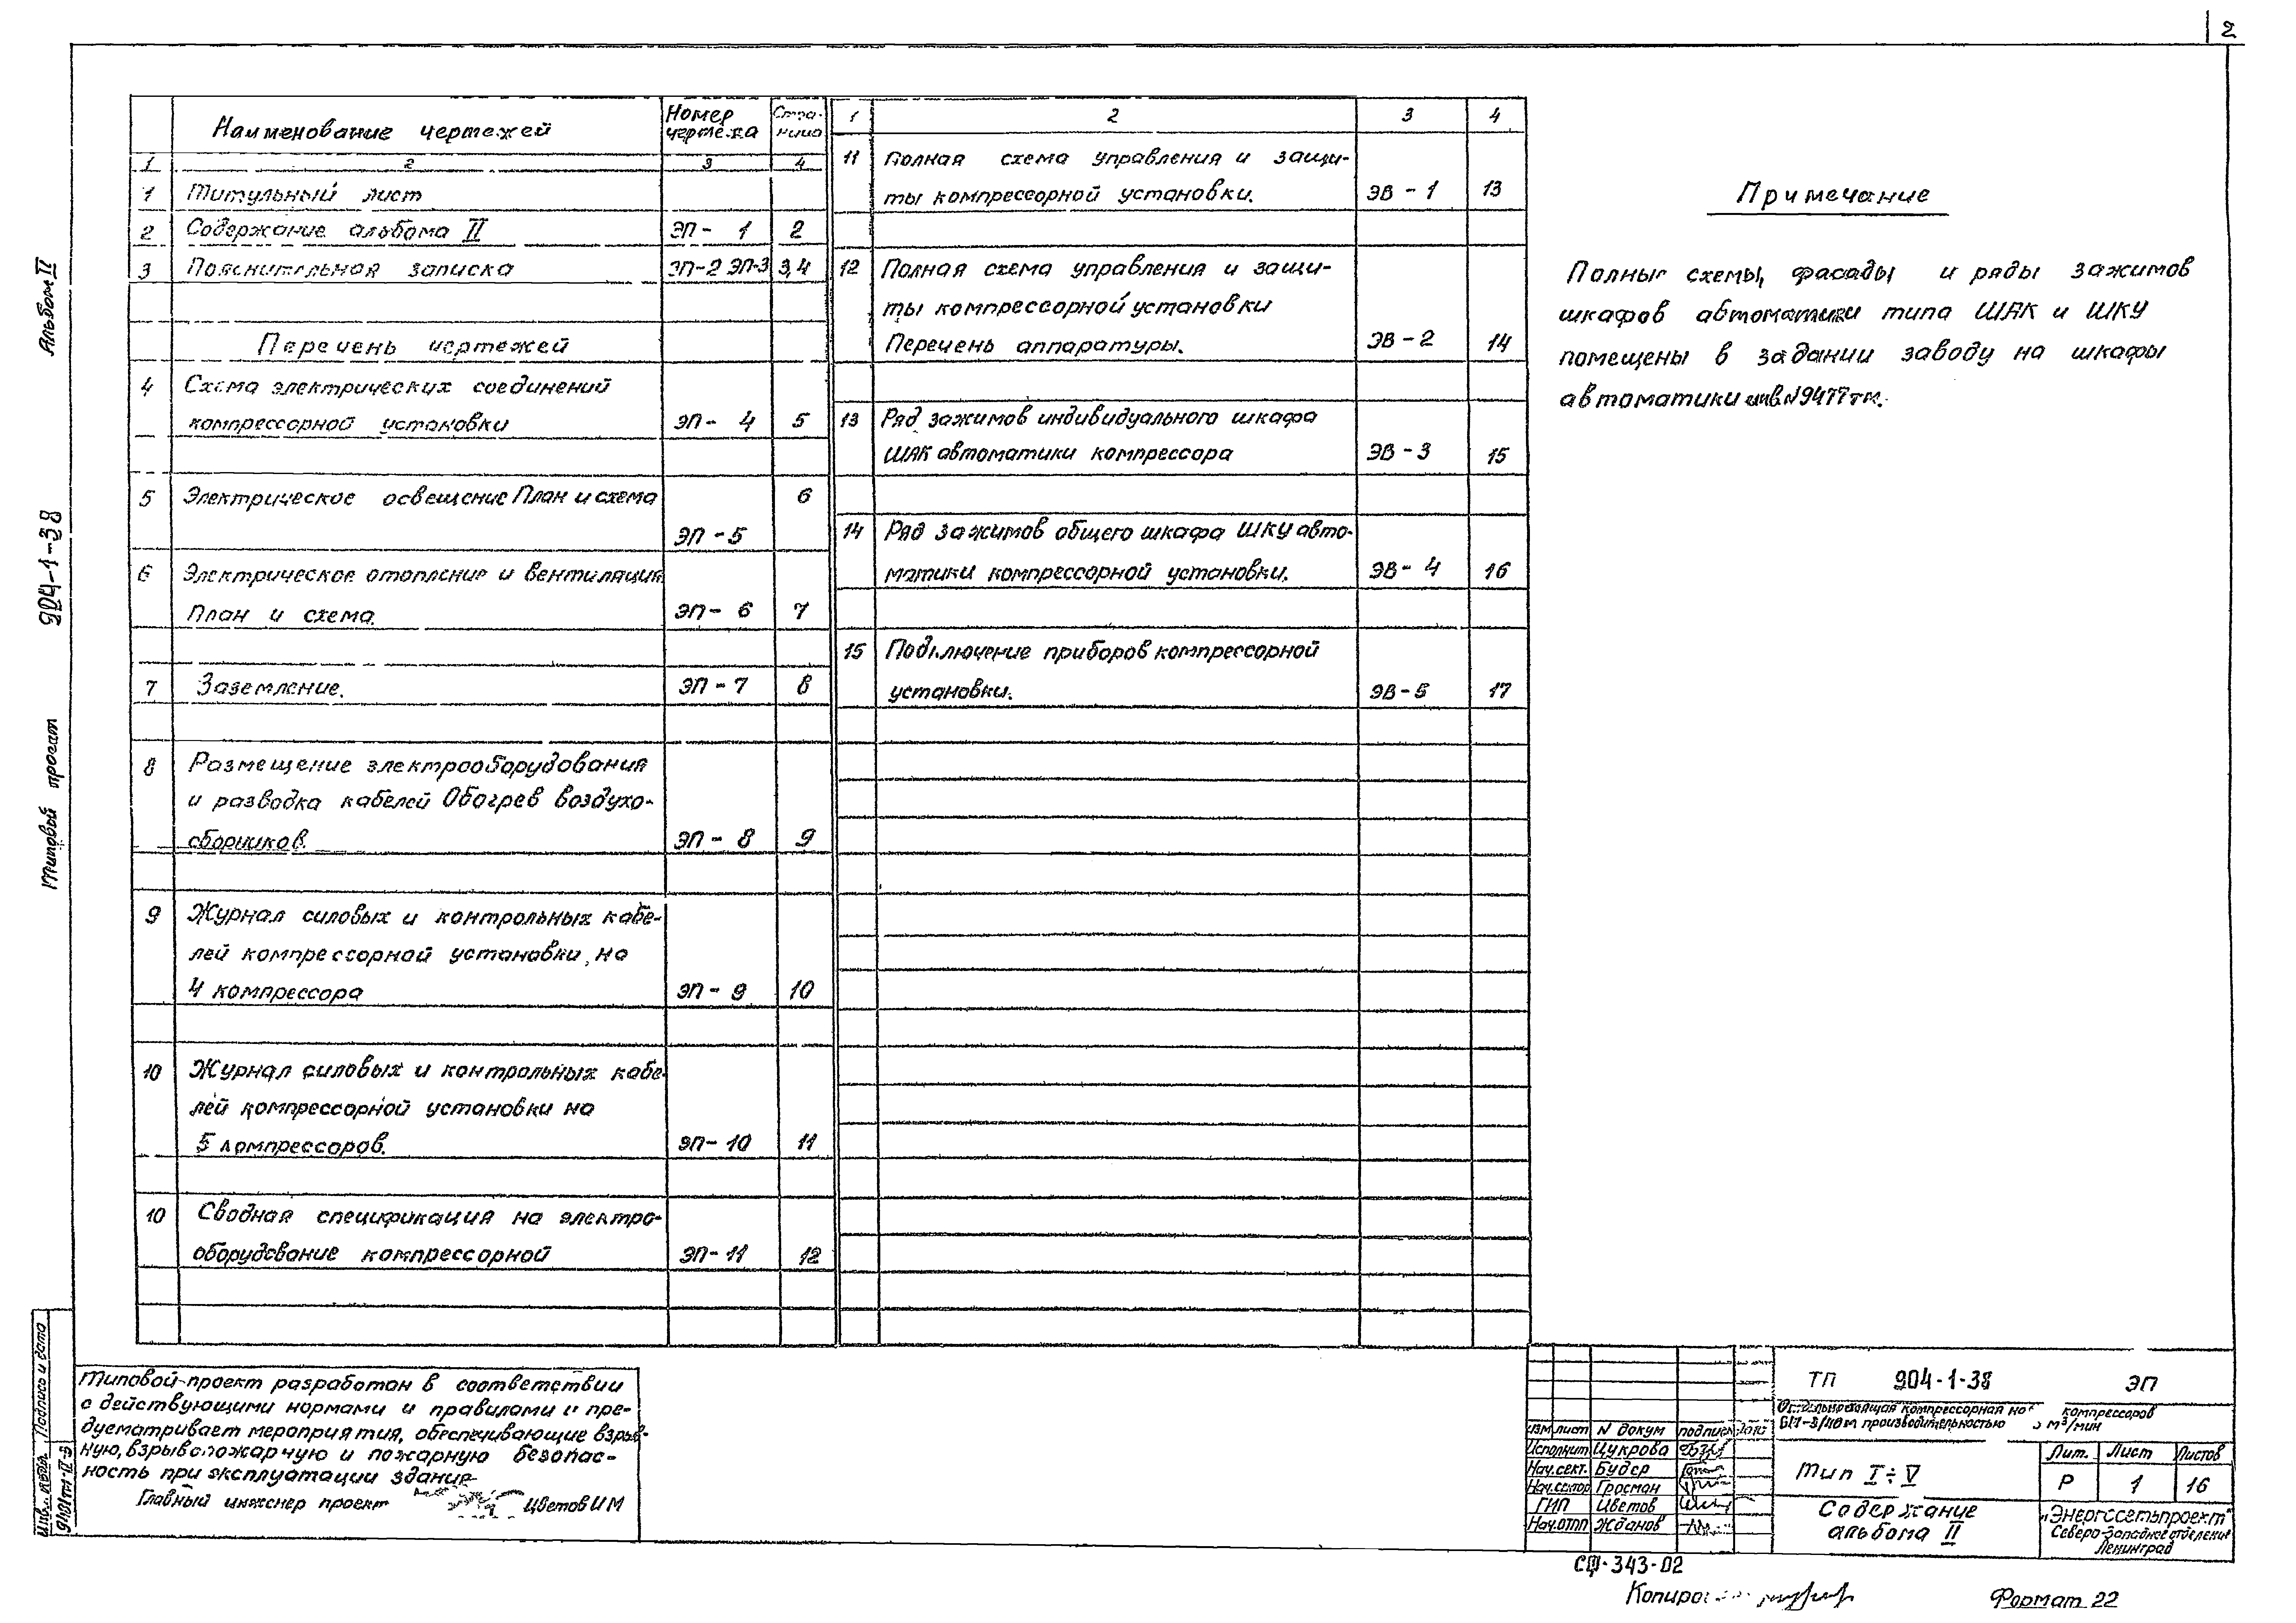 2
Наименование чертежей
Номер чертежа
Страница
1 2 3 4
1 Титульный лист
2 Содержание альбома II ЭП-1 2
3 Пояснительная записка ЭП-2 ЭП-3 3,4
Перечень чертежей
4 Схема электрических соединений
компрессорной установки ЭП-4 5
5 Электрическое освещение План и схема 6
ЭП-5
6 Электрическое отопление и вентиляция
План и схема. ЭП-6 7
7 Заземление. ЭП-7 8
8 Размещение электрооборудования
и разводка кабелей Обогрев воздухо-
сборников ЭП-8 9
9 Журнал силовых и контрольных кабе-
лей компрессорной установки, на
4 компрессора ЭП-9 10
10 Журнал силовых и контрольных кабе-
лей компрессорной установки на
5 компрессоров. ЭП-10 11
10 Сводная спецификация на электро-
оборудование компрессорной ЭП-11 12
1 2 3 4
11 Полная схема управления и защи-
ты компрессорной установки. ЭВ-1 13
12 Полная схема управления и защи-
ты компрессорной установки
Перечень аппаратуры. ЭВ-2 14
13 Ряд зажимов индивидуального шкафа
ШАК автоматики компрессора ЭВ-3 15
14 Ряд зажимов общего шкафа ШКУ авто-
матики компрессорной установки. ЭВ-4 16
15 Подключение приборов компрессорной
установки. ЭВ-5 17
Примечание
Полные схемы, фасады и ряды зажимов
шкафов автоматики типа ШАК и ШКУ
помещены в задании заводу на шкафы
автоматики инв N9477тм.
Альбом II
904-1-38
Типовой проект
Подпись и дата
Инв. N подл.
Типовой проект разработан в соответствии
с действующими нормами и правилами и пре-
дусматривает мероприятия, обеспечивающие взрыв-
ную, взрывопожарную и пожарную безопас-
ность при эксплуатации здания
Главный инженер проект Цветов И М
ТП 904-1-38 ЭП
Отдельностоящая компрессорная на компрессоров
производительностью м³/мин
Изм лист N докум подпись дата
Исполнит Цукрова
Нач.сект. Будер
Нач.сектор Гросман
ГИП Цветов
Нач.ОТПП Жданов
Тип I÷V
Лит. Лист Листов
Р 1 16
Содержание
альбома II
„Энергосетьпроект"
Северо-Западное отделение
Ленинград
СФ-343-02
Формат 22